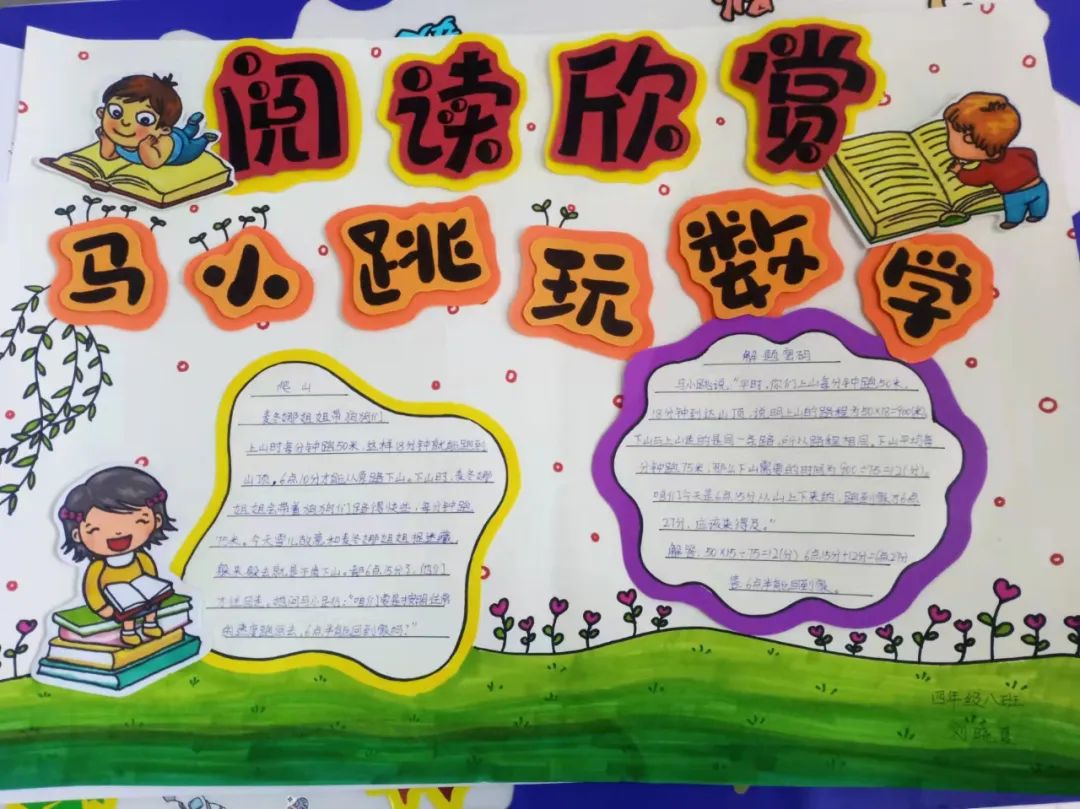 阅读欣赏
马小跳玩数学
爬山
麦冬娜姐姐带狗狗们
上山时每分钟跑50米,这样18分钟就能跑到
山顶。6点10分才能从原路下山。下山时,麦冬娜
姐姐会带着狗狗们跑得快些,每分钟跑
75米。今天雪儿故意和麦冬娜姐姐捉迷藏,
躲来躲去就是不肯下山。都6点15分了,
的速度跑回去,6点半能回到家吗?"
解题密码
马小跳说,"平时,你们上山每分钟跑50米,
18分钟到达山顶,说明上山的路程为50×18=900(米)
下山与上山走的是同一条路,所以路程相同。下山平均每
分钟跑75米,那么下山需要的时间为900÷75=12(分)。
咱们今天是6点15分从山上下来的,跑到家才6点
27分,应该来得及。"
解答:50×15÷75=12(分) 6点15分+12分=6点27分
答:6点半能回到家。
四年级八班